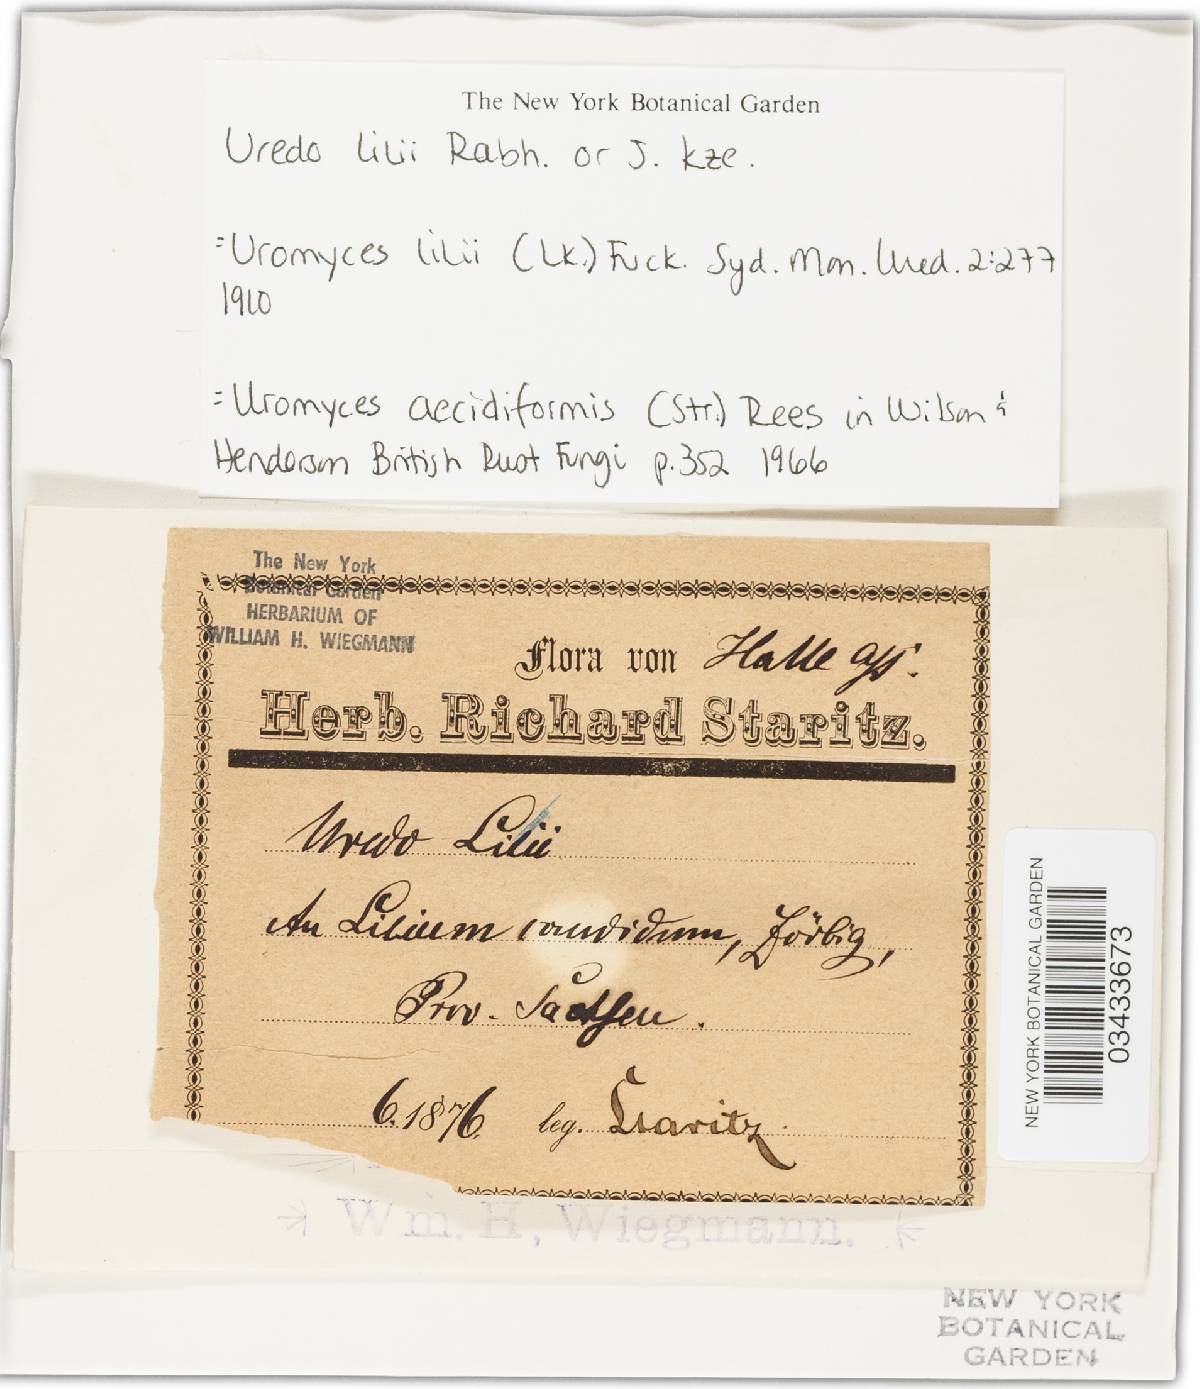 The New York Botanical Garden
Uredo lilii Rabh. or J. Kze.
=Uromyces lilii (Lk.) Fuck. Syd. Mon. Ured. 2:277
1910
=Uromyces aecidiformis (Str.) Rees in Wilson &
Henderson British Rust Fungi p.352 1966
The New York
Botanical Garden
HERBARIUM OF
WILLIAM H. WIEGMANN
Flora von Halle a/S.
Herb. Richard Staritz.
Uredo Lilii
An Lilium candidum, Zörbig,
Prov. Sachsen.
6.1876. leg. Staritz.
Wm. H, Wiegmann.
NEW YORK BOTANICAL GARDEN
03433673
NEW YORK
BOTANICAL
GARDEN